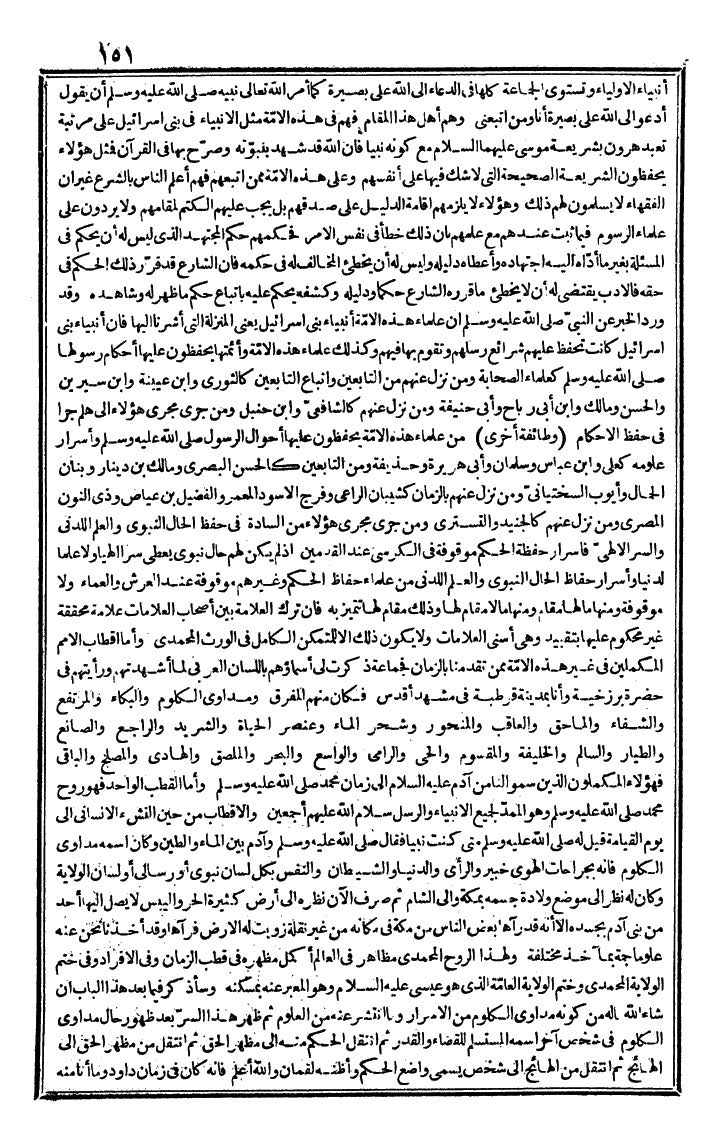 ١٥١
أنبياء الاولياء وتستوى الجماعة كلها فى الدعاء الى الله على بصيرة كما أمر الله تعالى نبيه صلى الله عليه وسلم أن يقول
أدعو الى الله على بصيرة أنا ومن اتبعنى وهم أهل هذا المقام فهم فى هذه الامّة مثل الانبياء فى بنى اسرائيل على مرتبة
تعبد هرون بشريعة موسى عليهما السلام مع كونه نبيا فان الله قد شهد بنبوّته وصرّح بها فى القرآن فمثل هؤلاء
يحفظون الشريعة الصحيحة التى لا شك فيها على أنفسهم وعلى هذه الامّة ممن اتبعهم فهم أعلم الناس بالشرع غير ان
الفقهاء لا يسلمون لهم ذلك وهؤلاء لا يلزمهم اقامة الدليل على صدقهم بل يجب عليهم الكتم لمقامهم ولا يردون على
علماء الرسوم فيما ثبت عندهم مع علمهم بان ذلك خطأ فى نفس الامر فحكمهم حكم المجتهد الذى ليس له أن يحكم فى
المسئلة بغير ما أدّاه اليه اجتهاده وأعطاه دليله وليس له أن يخطئ المخالف له فى حكمه فان الشارع قد قرّر ذلك الحكم فى
حقه فالادب يقتضى له أن لا يخطئ ما قرره الشارع حكما ودليله وكشفه يحكم عليه باتباع حكم ما ظهر له وشاهده وقد
ورد الخبر عن النبيّ صلى الله عليه وسلم ان علماء هذه الامّة أنبياء بنى اسرائيل يعنى المنزلة التى أشرنا اليها فان أنبياء بنى
اسرائيل كانت تحفظ عليهم شرائع رسلهم وتقوم بها فيهم وكذلك علماء هذه الامّة وأئمتها يحفظون عليها أحكام رسولها
صلى الله عليه وسلم كعلماء الصحابة ومن نزل عنهم من التابعين واتباع التابعين كالثورى وابن عيينة وابن سيرين
والحسن ومالك وابن أبى رباح وأبى حنيفة ومن نزل عنهم كالشافعىّ وابن حنبل ومن جرى مجرى هؤلاء الى هلم جرا
فى حفظ الاحكام (وطائفة أخرى) من علماء هذه الامّة يحفظون عليها أحوال الرسول صلى الله عليه وسلم وأسرار
علومه كعلى وابن عباس وسلمان وأبى هريرة وحذيفة ومن التابعين كالحسن البصرى ومالك بن دينار وبنان
الحمال وأيوب السختيانىّ ومن نزل عنهم بالزمان كشيبان الراعى وفرج الاسود المعمر والفضيل بن عياض وذى النون
المصرى ومن نزل عنهم كالجنيد والتسترى ومن جرى مجرى هؤلاء من السادة فى حفظ الحال النبوى والعلم اللدنى
والسر الالهىّ فاسرار حفظة الحكم موقوفة فى الكرسى عند القدمين اذ لم يكن لهم حال نبوى يعطى سرا الهيا ولا علما
لدنيا وأسرار حفاظ الحال النبوى والعلم اللدنى من علماء حفاظ الحكم وغيرهم موقوفة عند العرش والعماء ولا
موقوفة ومنها ما لها مقام ومنها ما لا مقام لها وذلك مقام لها تتميز به فان ترك العلامة بين أصحاب العلامات علامة محققة
غير محكوم عليها بتقييد وهى أسنى العلامات ولا يكون ذلك الا للتمكن الكامل فى الورث المحمدى وأما اقطاب الامم
المكملين فى غير هذه الامّة ممن تقدمنا بالزمان فجماعة ذكرت لى أسماؤهم باللسان العربى لما أشهدتهم ورأيتهم فى
حضرة برزخية وأنا بمدينة قرطبة فى مشهد أقدس فكان منهم المفرق ومداوى الكلوم والبكاء والمرتفع
والشفاء والماحق والعاقب والمنحور وشحر الماء وعنصر الحياة والشريد والراجع والصانع
والطيار والسالم والخليفة والمقسوم والحى والرامى والواسع والبحر والملصق والهادى والمصلح والباقى
فهؤلاء المكملون الذين سموا لنا من آدم عليه السلام الى زمان محمد صلى الله عليه وسلم وأما القطب الواحد فهو روح
محمد صلى الله عليه وسلم وهو الممدّ لجميع الانبياء والرسل سلام الله عليهم أجمعين والاقطاب من حين النشء الانسانى الى
يوم القيامة قيل له صلى الله عليه وسلم متى كنت نبيا فقال صلى الله عليه وسلم وآدم بين الماء والطين وكان اسمه مداوى
الكلوم فانه بجراحات الهوى خبير والرأى والدنيا والشيطان والنفس بكل لسان نبوى أو رسالى أو لسان الولاية
وكان له نظر الى موضع ولادة جسمه بمكة والى الشام ثم صرف الآن نظره الى أرض كثيرة الحر واليبس لا يصل اليها أحد
من بنى آدم بجسده الا أنه قد رآها بعض الناس من مكة فى مكانه من غير نقلة زويت له الارض فرآها وقد أخذنا نحن عنه
علوما جمة بمآخذ مختلفة ولهذا الروح المحمدى مظاهر فى العالم أكمل مظهره فى قطب الزمان وفى الافراد وفى ختم
الولاية المحمدى وختم الولاية العامّة الذى هو عيسى عليه السلام وهو المعبر عنه بمسكنه وسأذكر فيما بعد هذا الباب ان
شاء الله ماله من كونه مداوى الكلوم من الاسرار وما انتشر عنه من العلوم ثم ظهر هذا السرّ بعد ظهور حال مداوى
الكلوم فى شخص آخر اسمه المستسلم للقضاء والقدر ثم انتقل الحكم منه الى مظهر الحق ثم انتقل من مظهر الحق الى
الهائج ثم انتقل من الهائج الى شخص يسمى واضع الحكم وأظنه لقمان والله أعلم فانه كان فى زمان داود وما أنا منه